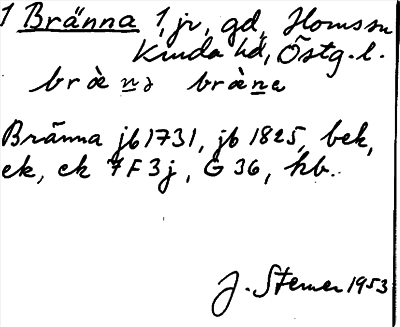 1 Bränna 1, jr, gd, Hornssn
Kinda hd, Östg. l.
brä̀n̲ə brä̀n̲a
Bränna jb 1731, jb 1825, bek,
ek, ek 7F3j, G 36, hb.
J. Sterner 1953